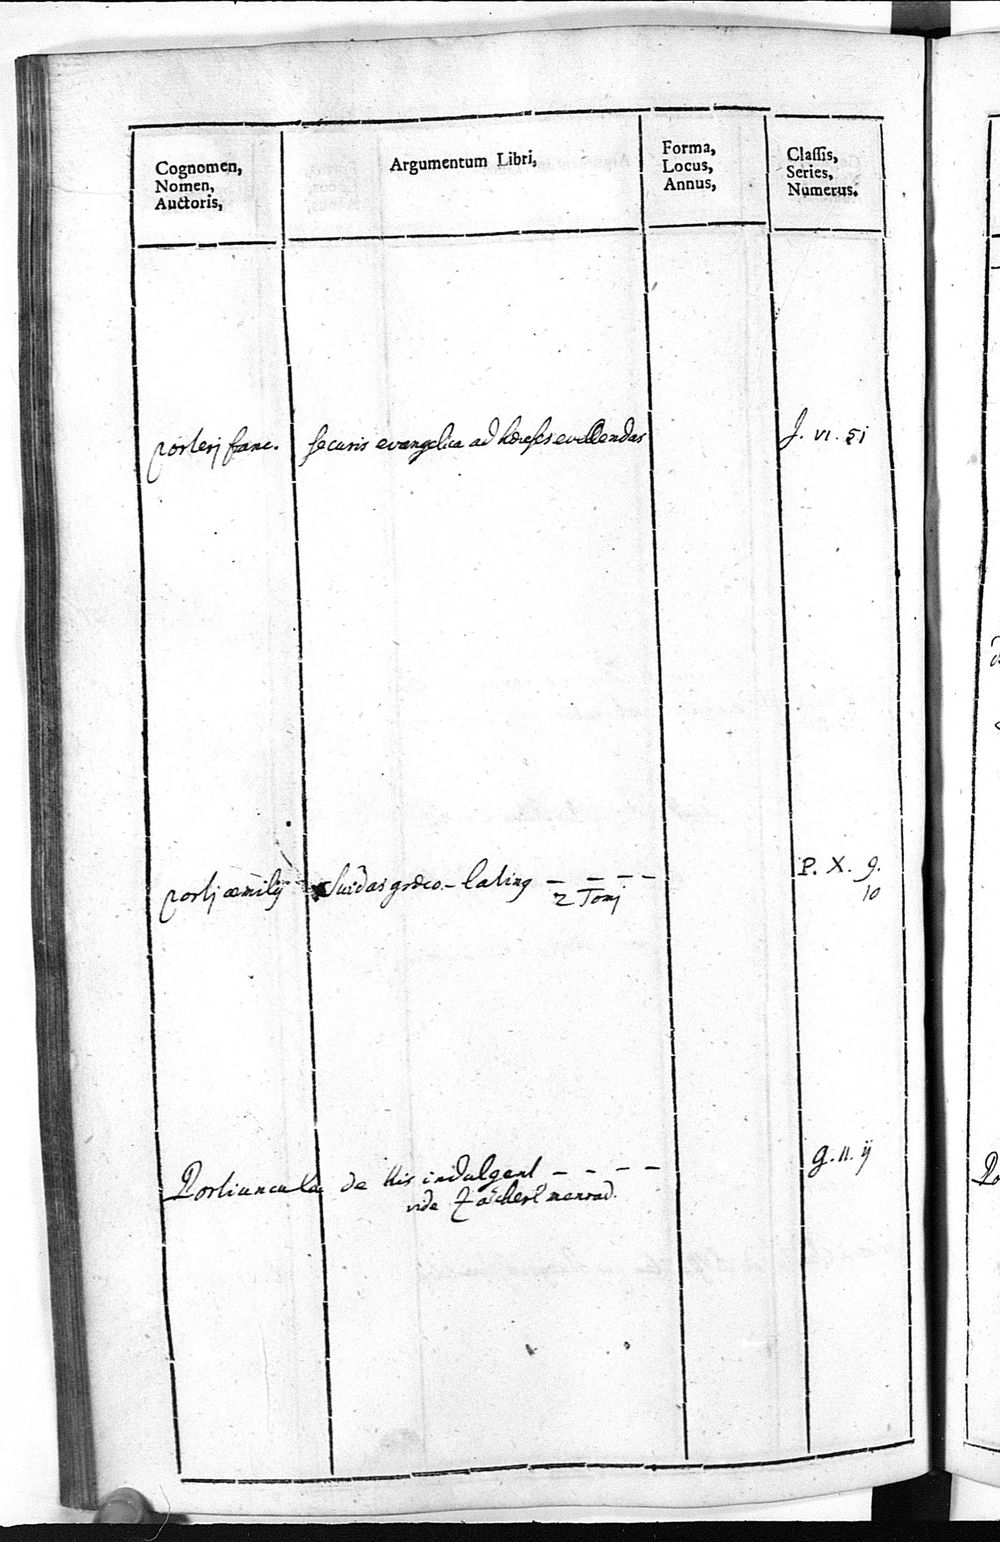 Cognomen,
Nomen,
Auctoris,
Argumentum Libri,
Forma,
Locus,
Annus,
Classis,
Series,
Numerus.
porterj franc. securis evangelica ad hæreses evellendas J. VI. 51
portj æmilij Suidas græco-latinq - - - - P. X. 9.
2 Tomj 10
Portiuncula de his indulgent - - - - g. II. ij
vide Zacherl menrad.